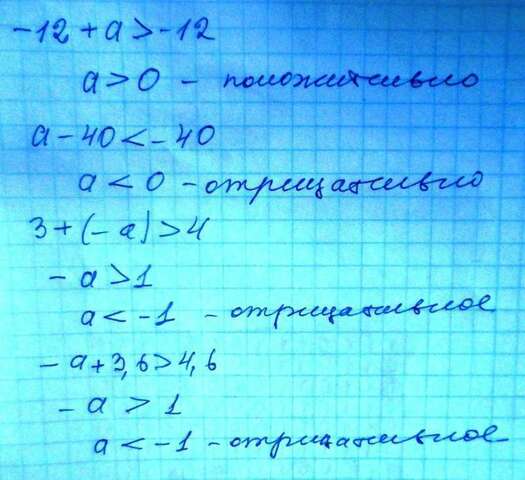 -12 + a > -12
a > 0 - положительно
a - 40 < - 40
a < 0 - отрицательно
3 + (- a) > 4
- a > 1
a < -1 - отрицательное
- a + 3,6 > 4,6
- a > 1
a < -1 - отрицательное